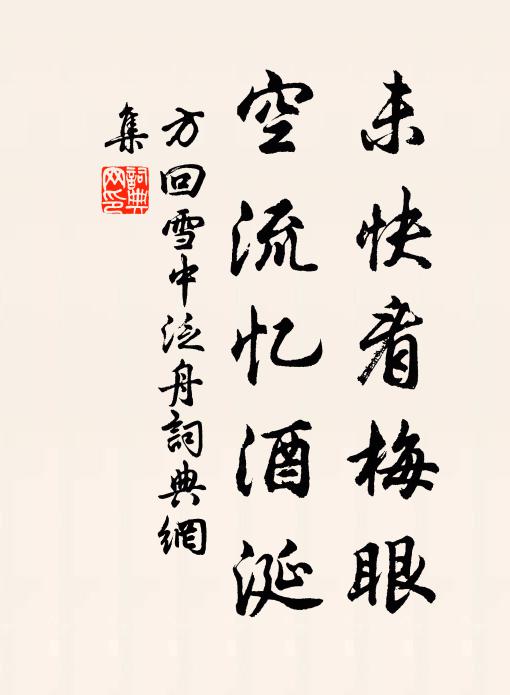 未快看梅眼
空流忆酒涎
方回雪中泛舟詞典網
集
詞典
网印